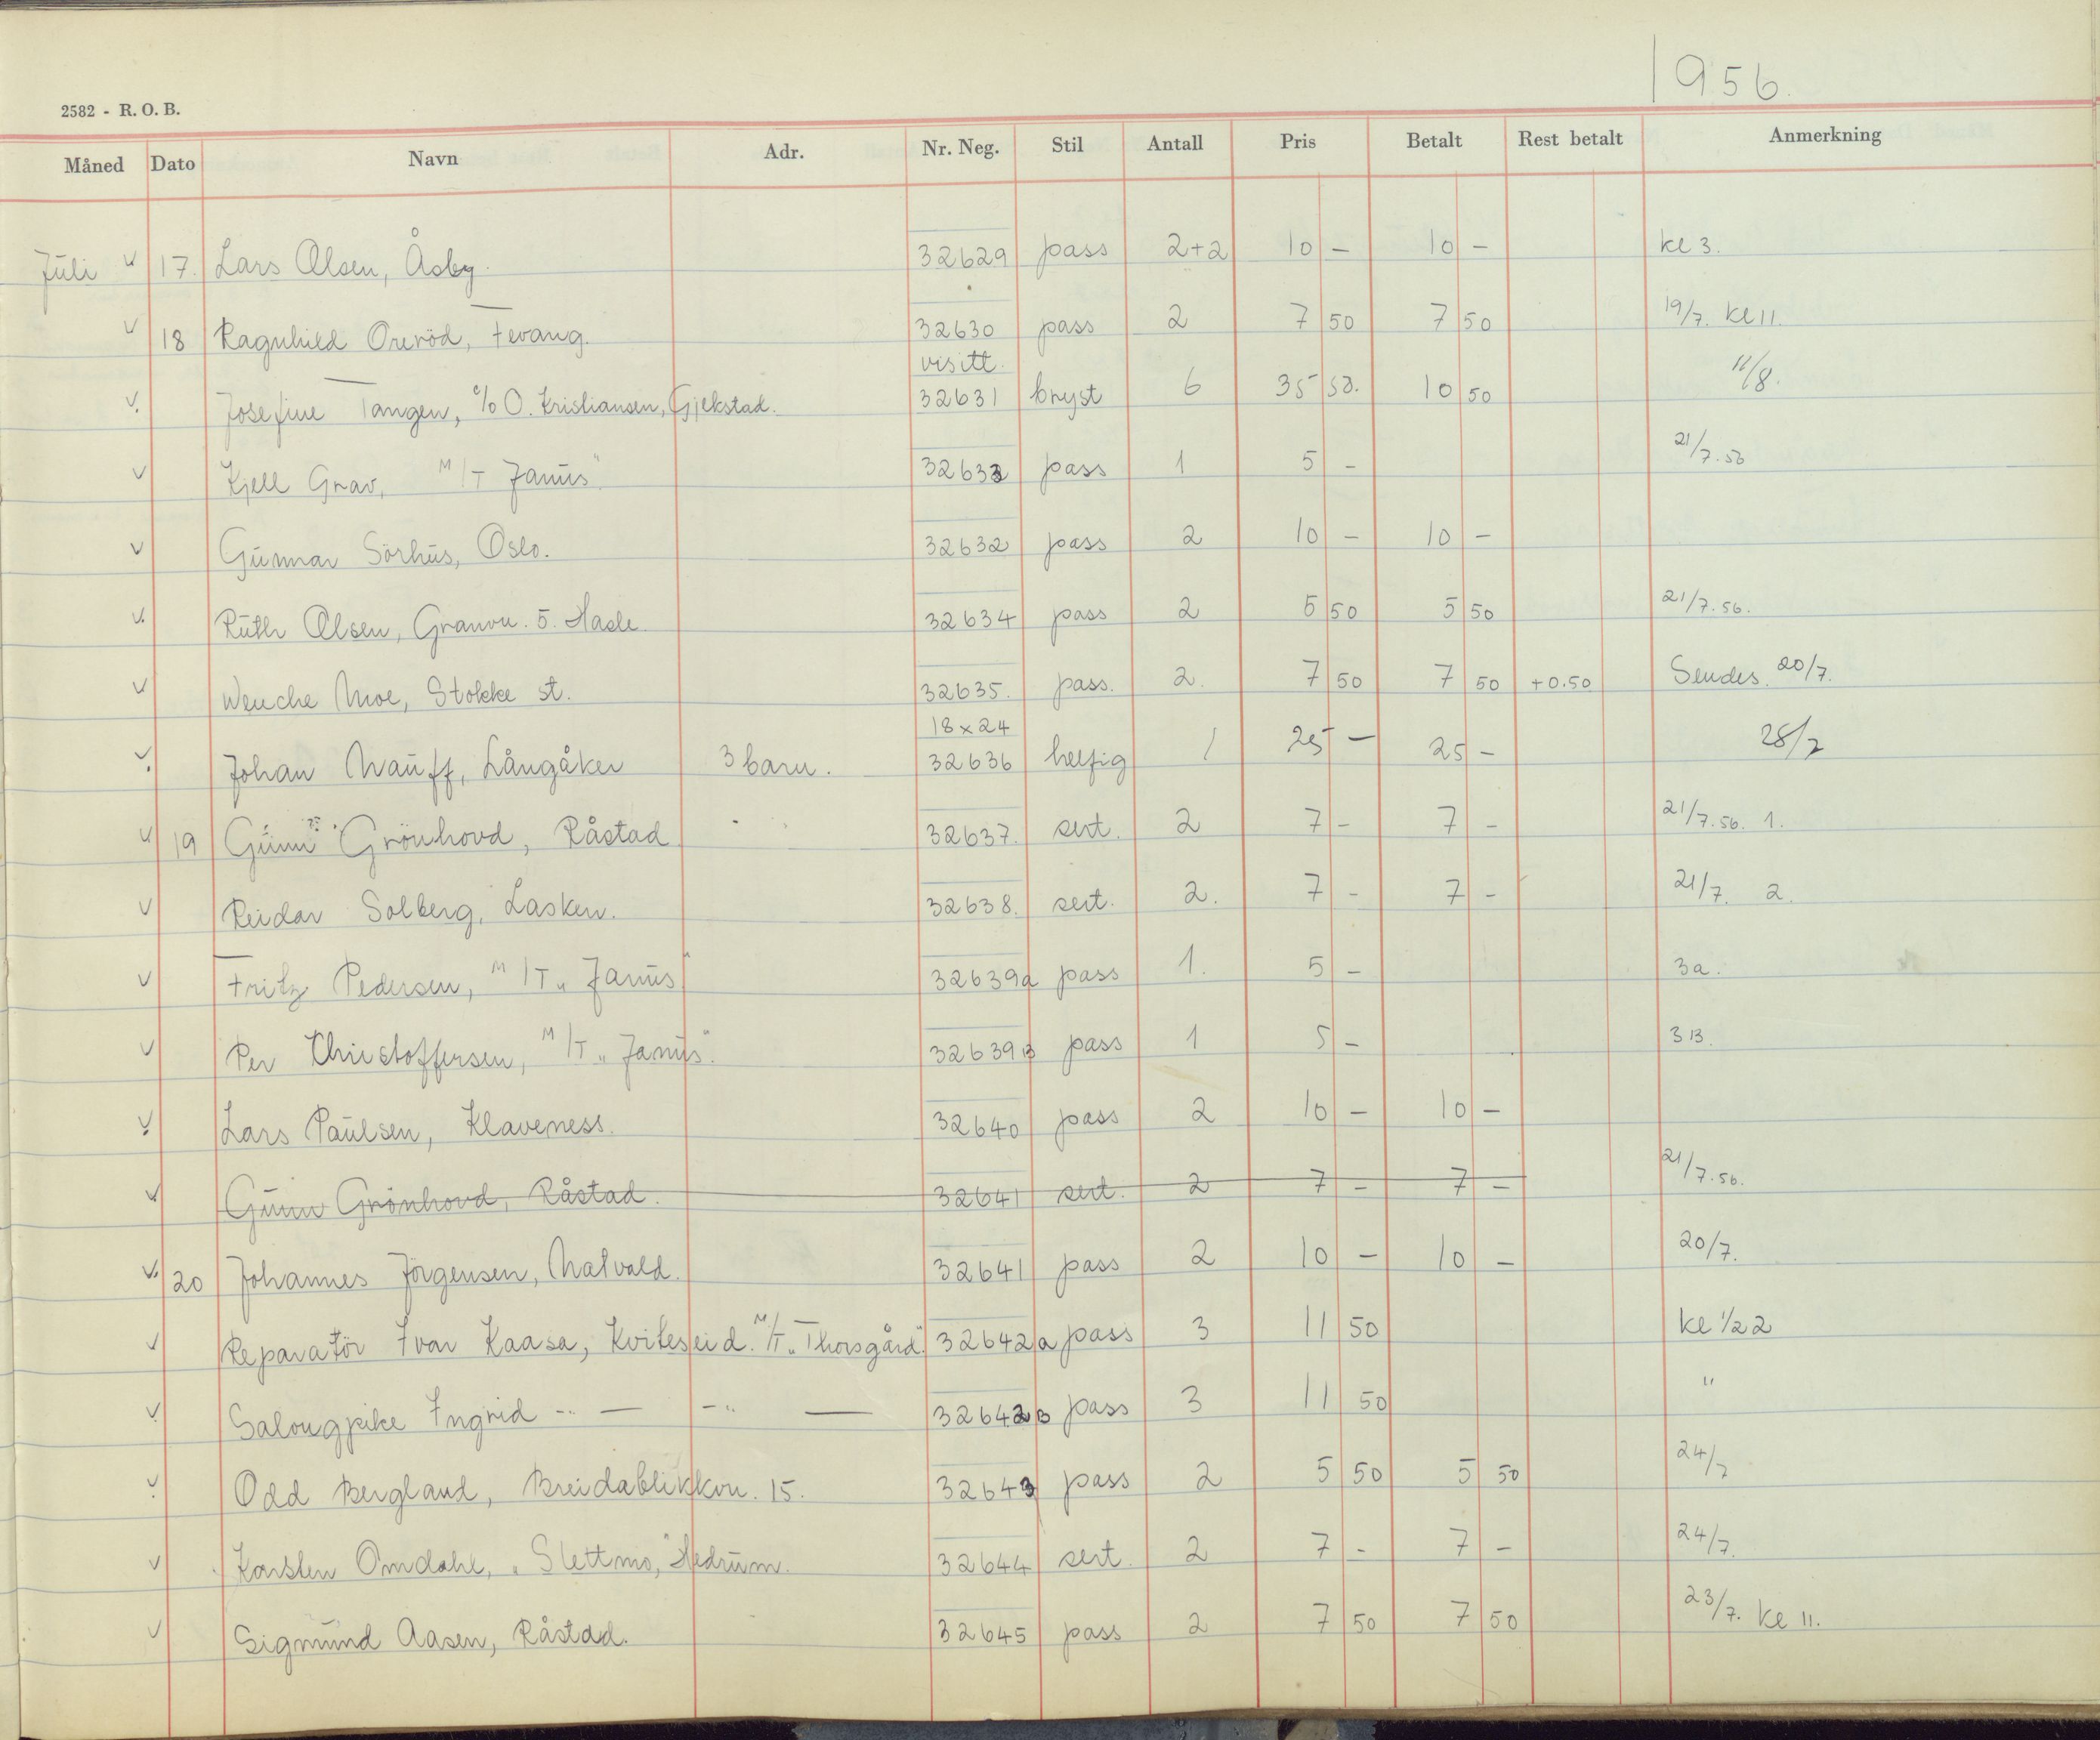 1956.
2582 - R. O. B.
Måned Dato Navn Adr. Nr. Neg. Stil Antall Pris Betalt Rest betalt Anmerkning
Juli v 17. Lars Olsen, Åsby. 32629 pass 2+2 10 - 10 - kl 3.
v 18 Ragnhild Oreröd, Fevang. 32630 pass 2 7 50 7 50 19/7. kl 11.
visitt.
v. Josefine Tangen, c/o O. Kristiansen, Gjekstad. 32631 bryst 6 35 50. 10 50 11/8.
v Kjell Grav, M/T Janus" 32633 pass 1 5 - 21/7.56
v Gunnar Sörhus, Oslo. 32632 pass 2 10 - 10 -
v. Ruth Olsen, Granvn. 5. Hasle 32634 pass 2 5 50 5 50 21/7.56.
v Wenche Moe, Stokke st. 32635. pass. 2. 7 50 7 50 +0.50 Sendes. 20/7.
18x24
v. Johan Mauff, Långåker 3 barn. 32636 helfig 1 25 - 25 - 28/7
v 19 Gunn Grönhovd, Råstad 32637. sert. 2 7 - 7 - 21/7.56. 1.
v Reidar Solberg, Lasken. 32638. sert. 2. 7 - 7 - 21/7. 2.
v Fritz Pedersen, M/T „Janus" 32639a pass 1. 5 - 3a.
v Per Christoffersen, M/T „Janus". 32639B pass 1 5 - 3B.
v. Lars Paulsen, Klaveness. 32640 pass 2 10 - 10 -
v. Gunn Grönhovd, Råstad. 32641 sert. 2 7 - 7 - 21/7.56.
v. 20 Johannes Jörgensen, Natvald. 32641 pass 2 10 - 10 - 20/7.
v Reparatör Ivar Kaasa, Kviteseid. M/T „Thorsgård". 32642a pass 3 11 50 kl 1/2 2
v. Salongpike Ingrid -"- — -"- — 32642B pass 3 11 50 "
v. Odd Bergland, Breidablikkvn. 15. 32643 pass 2 5 50 5 50 24/7
v Karsten Omdahl, „Slettmo," Hedrum. 32644 sert. 2 7 - 7 - 24/7.
v Sigmund Aasen, Råstad. 32645 pass 2 7 50 7 50 23/7. kl 11.